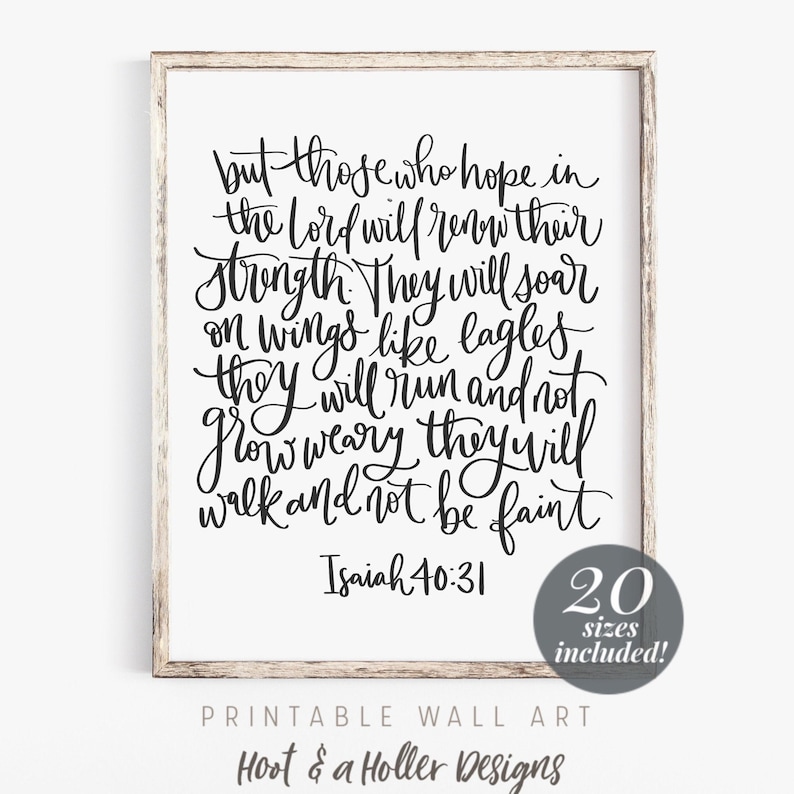 but those who hope in
the Lord will renew their
strength. They will soar
on wings like eagles
they will run and not
grow weary they will
walk and not be faint
Isaiah 40:31
20
sizes
included!
PRINTABLE WALL ART
Hoot & a Holler Designs